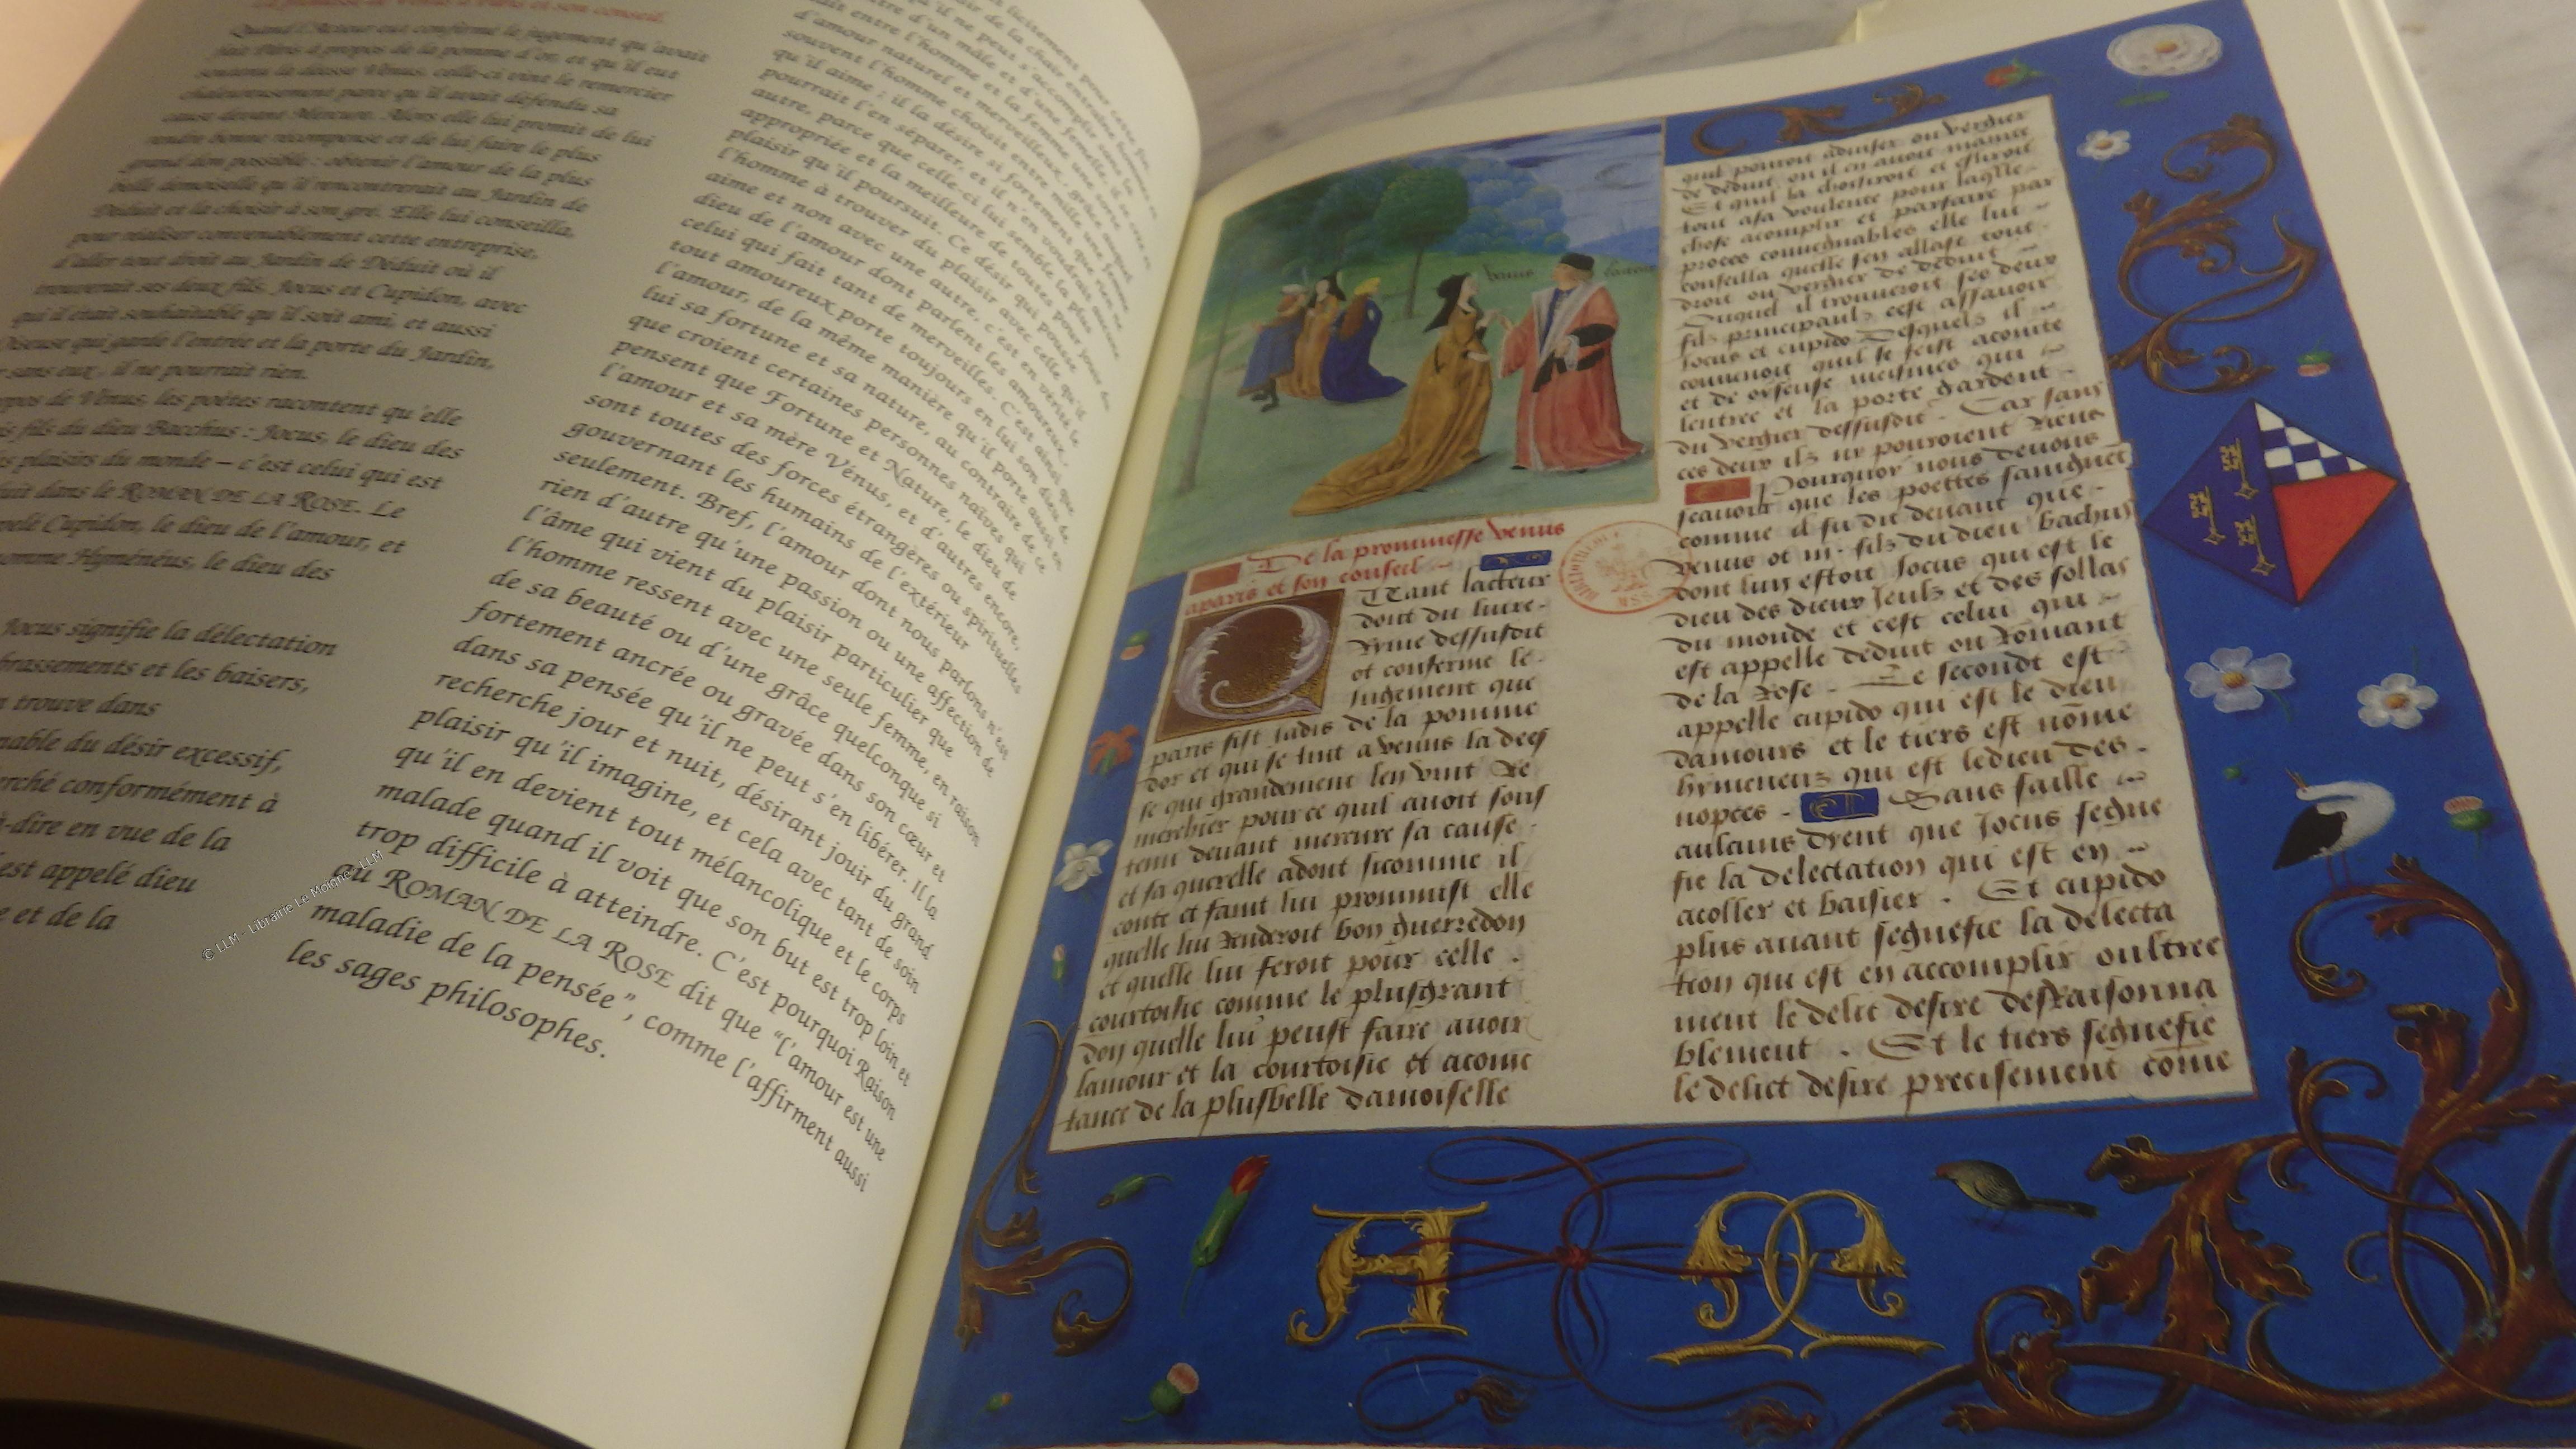 La promesse de Vénus à Pâris et son conseil.
Quand l'Acteur eut confirmé le jugement qu'avait
fait Pâris à propos de la pomme d'or, et qu'il eut
soutenu la déesse Vénus, celle-ci vint le remercier
chaleureusement parce qu'il avait défendu sa
cause devant Mercure. Alors elle lui promit de lui
rendre bonne récompense et de lui faire le plus
grand don possible : obtenir l'amour de la plus
belle demoiselle qu'il rencontrerait au Jardin de
Déduit et la choisir à son gré. Elle lui conseilla,
pour réaliser convenablement cette entreprise,
d'aller tout droit au Jardin de Déduit où il
trouverait ses deux fils, Jocus et Cupidon, avec
qui il était souhaitable qu'il soit ami, et aussi
Oiseuse qui garde l'entrée et la porte du Jardin,
sans eux, il ne pourrait rien.
propos de Vénus, les poètes racontent qu'elle
fils du dieu Bacchus : Jocus, le dieu des
plaisirs du monde – c'est celui qui est
dans le ROMAN DE LA ROSE. Le
Cupidon, le dieu de l'amour, et
Hyménéus, le dieu des
Jocus signifie la délectation
brassements et les baisers,
trouve dans
nable du désir excessif,
rché conformément à
à-dire en vue de la
est appelé dieu
et de la
d'un mâle et d'une femelle, il
entre l'homme et la femme une
d'amour naturel et merveilleux, grâce auquel
souvent l'homme choisit entre mille une femme
qu'il aime ; il la désire si fortement que rien ne
pourrait l'en séparer, et il n'en voudrait aucune
autre, parce que celle-ci lui semble la plus
appropriée et la meilleure de toutes pour jouir du
plaisir qu'il poursuit. Ce désir qui pousse
l'homme à trouver du plaisir avec celle qu'il
aime et non avec une autre, c'est en vérité le
dieu de l'amour dont parlent les amoureux,
celui qui fait tant de merveilles. C'est ainsi que
tout amoureux porte toujours en lui son dieu de
l'amour, de la même manière qu'il porte aussi en
lui sa fortune et sa nature, au contraire de ce
que croient certaines personnes naïves qui
pensent que Fortune et Nature, le dieu de
l'amour et sa mère Vénus, et d'autres encore,
sont toutes des forces étrangères ou spirituelles
gouvernant les humains de l'extérieur
seulement. Bref, l'amour dont nous parlons n'est
rien d'autre qu'une passion ou une affection de
l'âme qui vient du plaisir particulier que
l'homme ressent avec une seule femme, en raison
de sa beauté ou d'une grâce quelconque si
fortement ancrée ou gravée dans son cœur et
dans sa pensée qu'il ne peut s'en libérer. Il la
recherche jour et nuit, désirant jouir du grand
plaisir qu'il imagine, et cela avec tant de soin
qu'il en devient tout mélancolique et le corps
malade quand il voit que son but est trop loin et
trop difficile à atteindre. C'est pourquoi Raison
au ROMAN DE LA ROSE dit que "l'amour est une
maladie de la pensée", comme l'affirment aussi
les sages philosophes.
© LLM - Librairie Le Moigne - LLM
venus lacteur
De la prommesse venus
aparis et son conseil
Quant lacteur
dont du livre
ryme dessusdit
ot conferme le
Jugement que
paris fist jadis de la pomme
dor et qui se tint a venus la dees
se qui grandement len vint Re
merchier pource quil avoit sous
tenu devant mercure sa cause
et sa querelle adont sicomme il
conte et faint lui prommist elle
quelle lui Renderoit bon guerredon
et quelle lui feroit pour celle
courtoisie comme le plusgrant
don quelle lui peust faire avoir
lamour et la courtoisie et acoinc
tance de la plusbelle damoiselle
quil pourroit adviser ou vergier
de deduit ou il en avoit mainte
Et quil la choisiroit et esliroit
tout asa voulente pour laqlle
chose acomplir et parfaire par
proces convegnables elle lui
conseilla quelle sen allast tout
droit ou vergier de deduit
Ouquel il trouveroit ses deux
filz principaulz cest assavoir
Jocus et cupido Desquelz il
convenoit quil se feist acointe
et de oyseuse meismes qui
lentree et la porte gardent
du vergier dessusdit. Car sans
ces deux ilz ne pouroient Riens
Pourquoy nous devons
scavoir que les poettes faingnet
comme il fu dit devant que
venus ot III. filz du dieu bachus
dont lun estoit Jocus qui est le
dieu des dieux Jeulz et des sollas
du monde et cest celui qui
est appelle deduit ou Romant
de la Rose. Le secondt est
appelle cupido qui est le dieu
damours et le tiers est nōme
hymeneus qui est ledieu des
nopces. Sans faille
aulcuns dient que Jocus segne
fie la delectation qui est en
acoller et baisier. Et cupido
plus avant seguefie la delecta
tion qui est en accomplir oultree
ment le delit desire desraisonna
blement. Et le tiers seguefie
le delict desire precisement cōme
A M